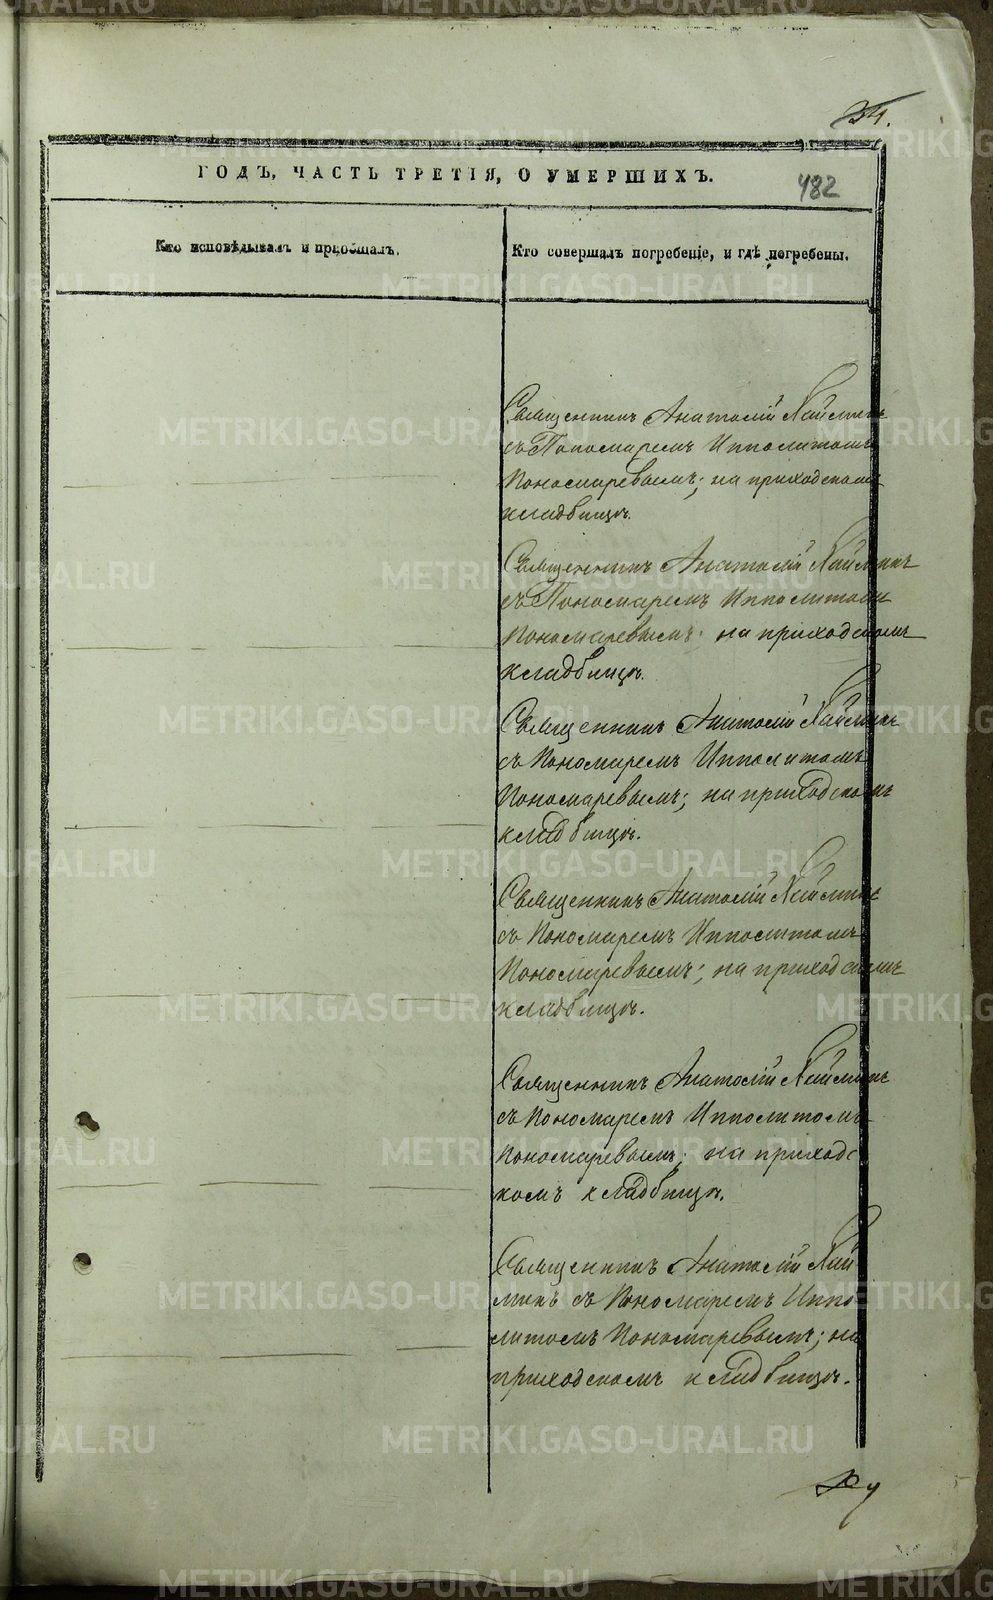 34.
ГОДЪ, ЧАСТЬ ТРЕТІЯ, О УМЕРШИХЪ.
482
Кто исповѣдывалъ и пріобщалъ.
Кто совершалъ погребеніе, и гдѣ погребены.
Священникъ Анатолій
съ Пономаремъ Ипполитомъ
Пономаревымъ; на приходскомъ
кладбищѣ.
Священникъ Анатолій
съ Пономаремъ Ипполитомъ
Пономаревымъ; на приходскомъ
кладбищѣ.
Священникъ Анатолій
съ Пономаремъ Ипполитомъ
Пономаревымъ; на приходскомъ
кладбищѣ.
Священникъ Анатолій
съ Пономаремъ Ипполитомъ
Пономаревымъ; на приходскомъ
кладбищѣ.
Священникъ Анатолій
съ Пономаремъ Ипполитомъ
Пономаревымъ; на приходс-
комъ кладбищѣ.
Священникъ Анатолій
съ Пономаремъ Иппо-
литомъ Пономаревымъ; на
приходскомъ кладбищѣ.
METRIKI.GASO-URAL.RU